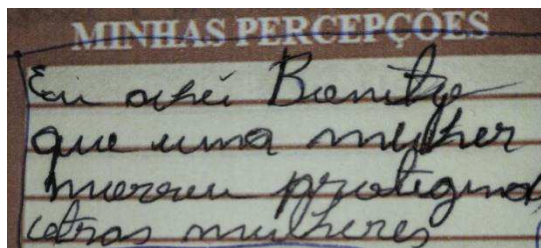 MINHAS PERCEPÇÕES
Eu achei Bonito
que uma mulher
morreu protegind
otras mulheres